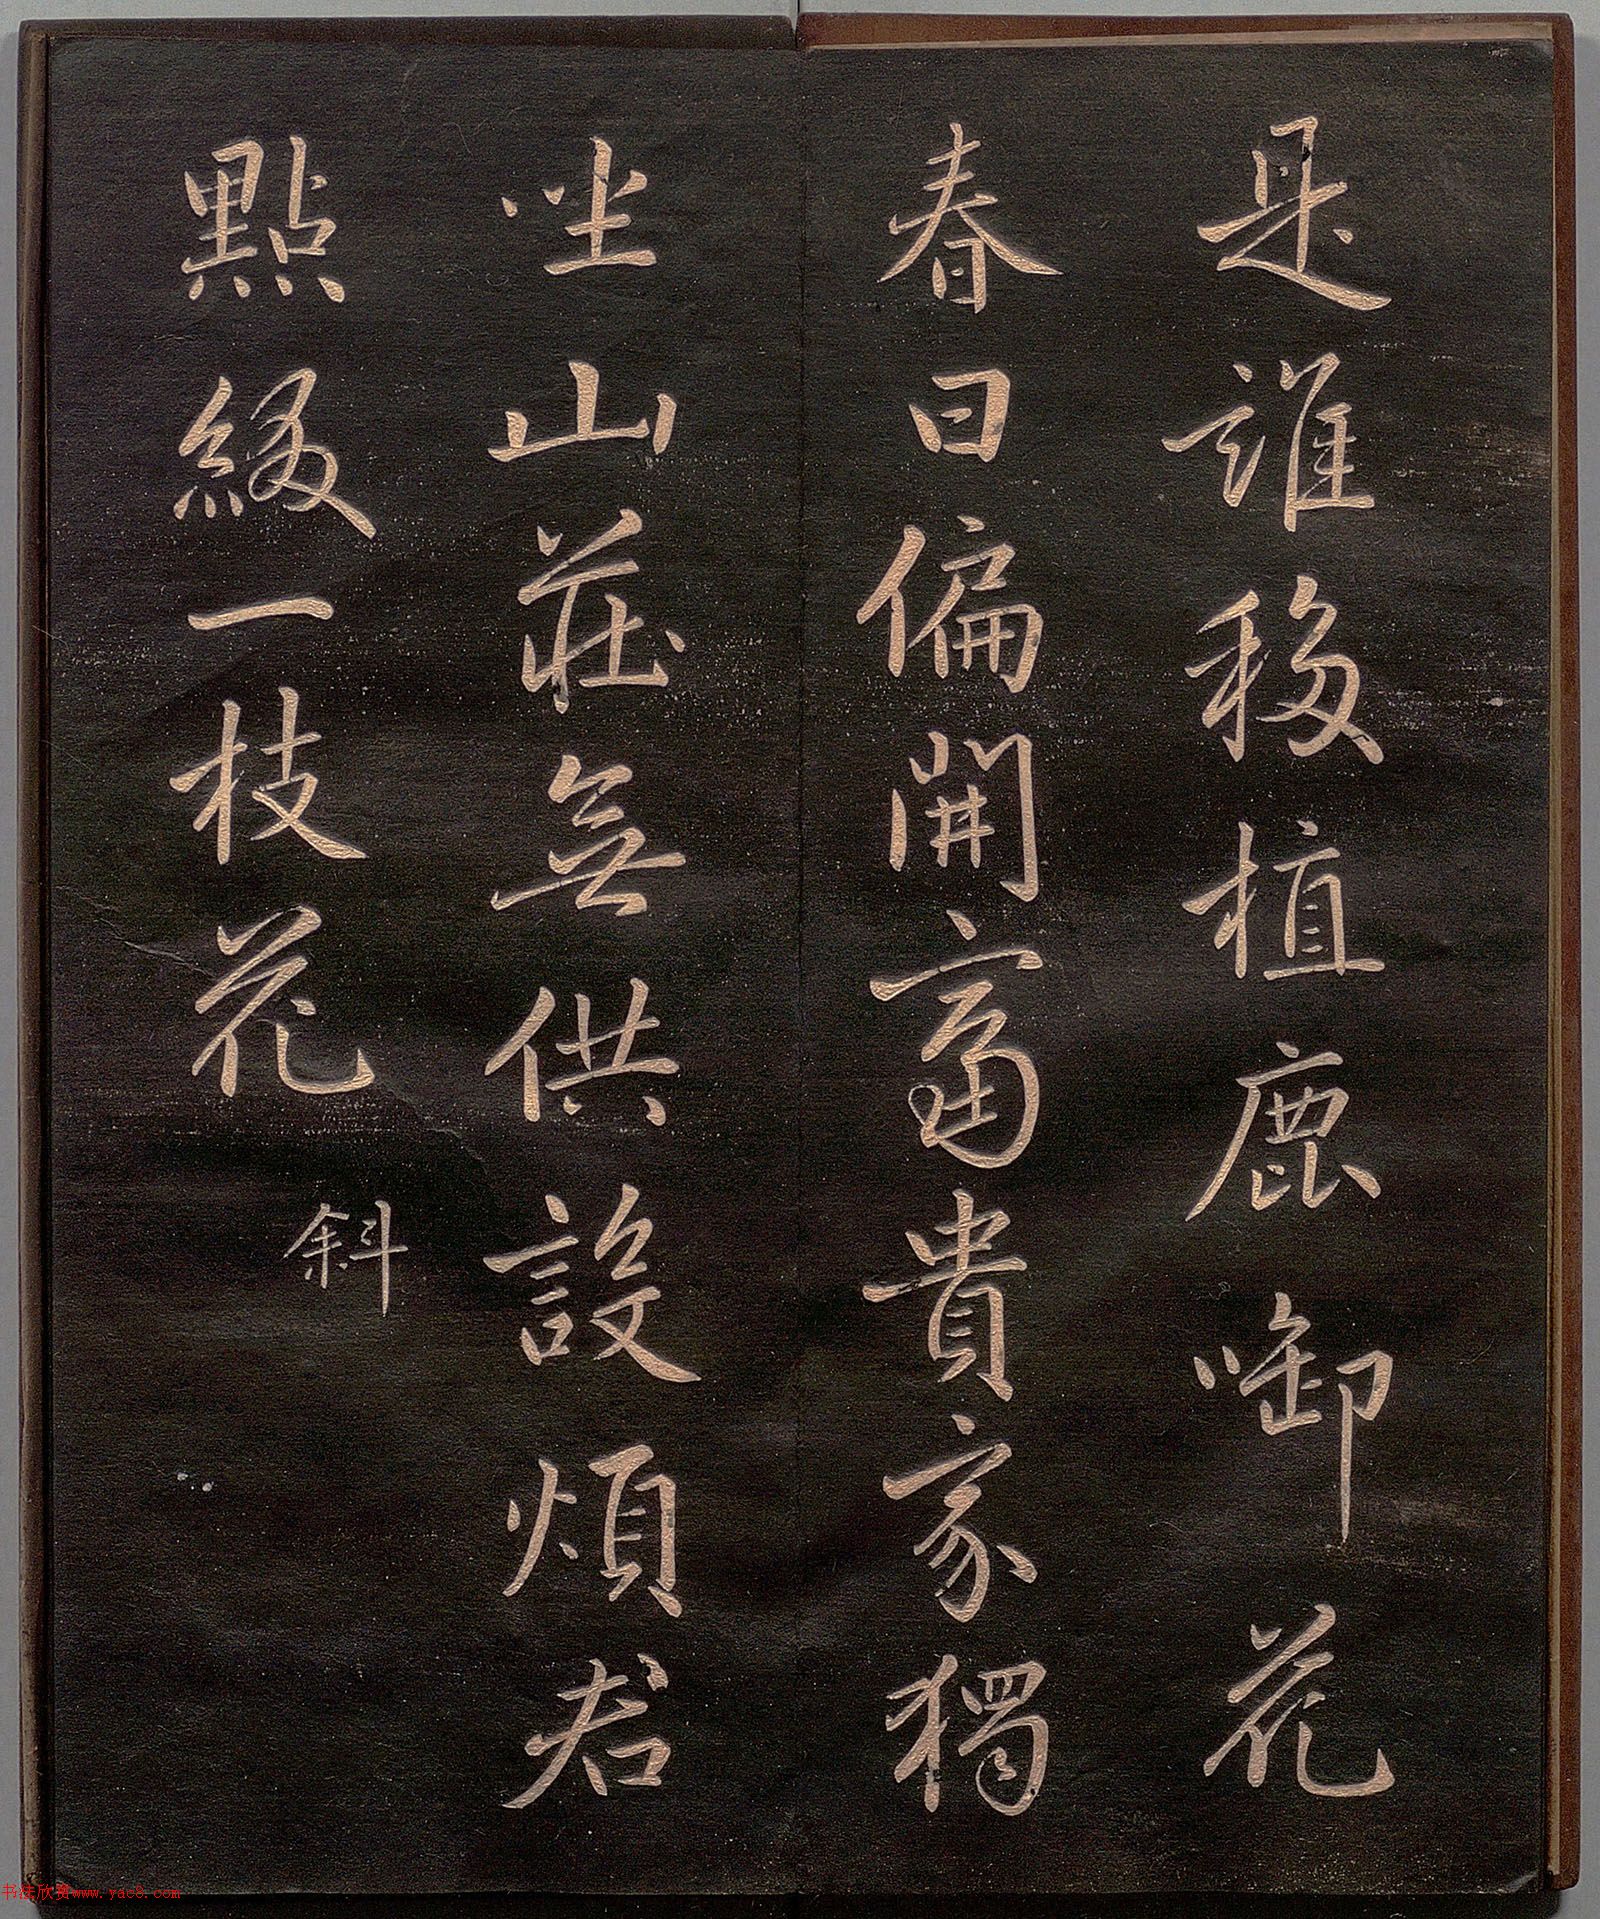 是誰移植鹿啣花
春日偏開富貴家獨
坐山莊無供設煩君
點綴一枝花
斜
书法欣赏www.yac8.com